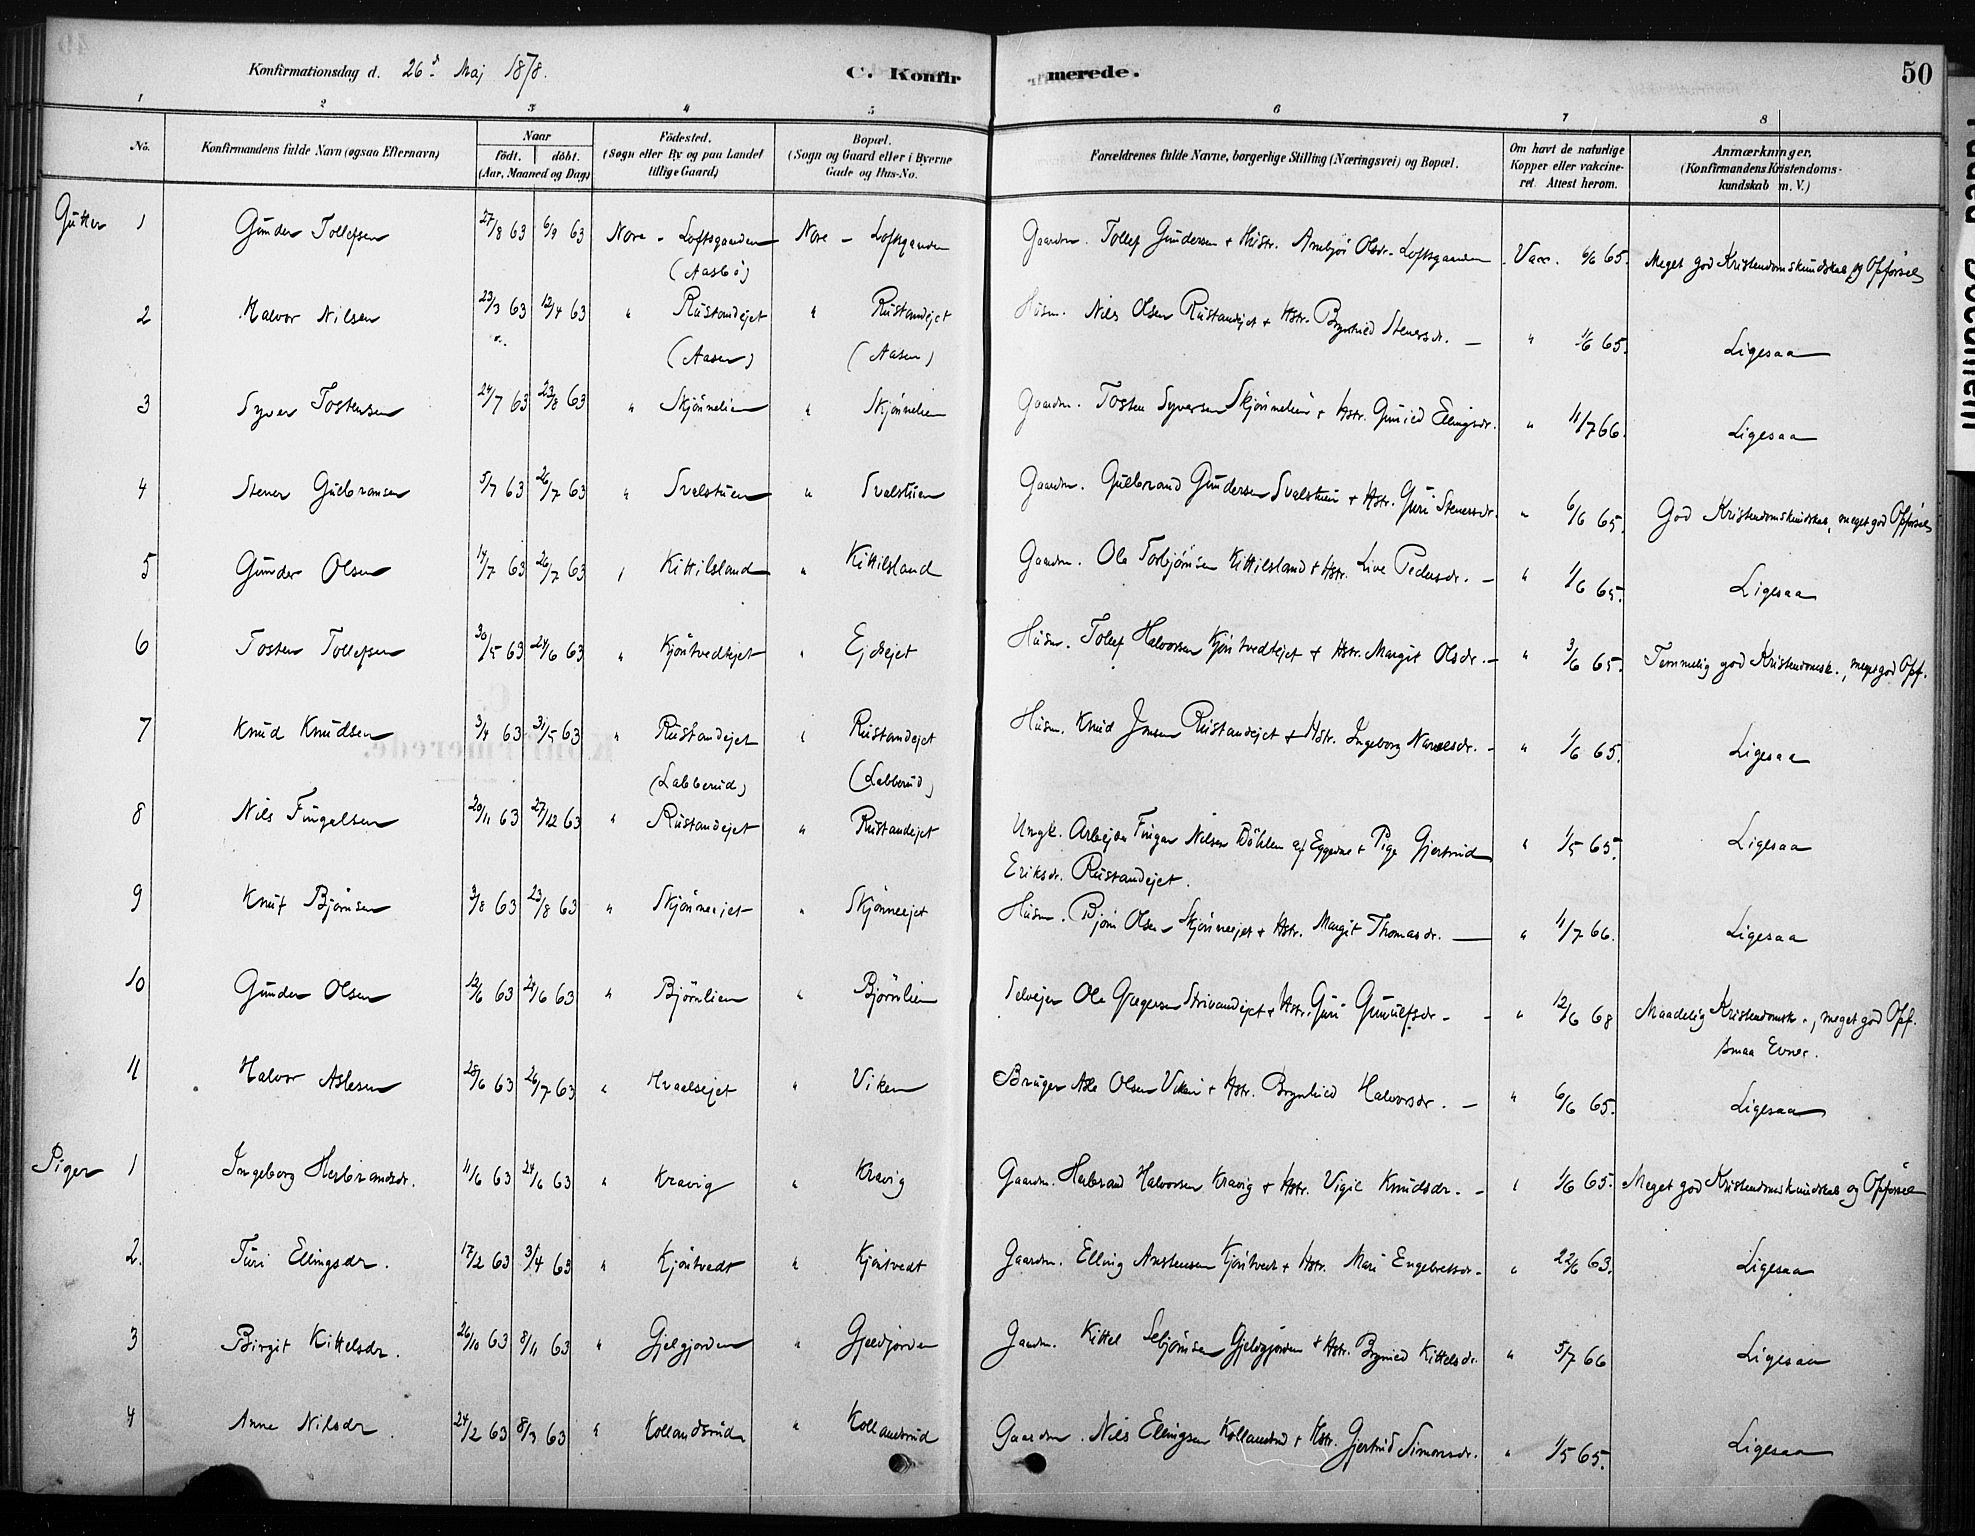 Konfirmationsdag d. 26de Maj 1878.
C. Konfirmerede.
50
1 2 3 4 5 6 7 8
No.
Konfirmandens fulde Navn (ogsaa Efternavn)
Naar
födt. | döbt.
(Aar, Maaned og Dag)
Födested.
(Sogn eller By og paa Landet
tillige Gaard)
Bopæl.
(Sogn og Gaard eller i Byerne
Gade og Hus-No.
Forældrenes fulde Navne, borgerlige Stilling (Næringsvei) og Bopæl.
Om havt de naturlige
Kopper eller vakcine-
ret. Attest herom.
Anmærkninger.
(Konfirmandens Kristendoms-
kundskab m. V.)
Gutter 1 Gunder Tollefsen 27/8 63 6/9 63 Nore - Loftsgaarden (Aasbö) Nore - Loftsgaarden Gaardm. Tollef Gundersen + Hustr. Anebjör Olsdr. Loftsgaarden Vacc. 6/6 65. Meget god Kristendomskundskab og Opförsel
2 Halvor Nilsen 23/3 63 12/4 63 " Rustandejet (Aasen) " Rustandejet (Aasen) Husm. Nils Olsen Rustandejet + Hstr. Brynhild Stenersdr. — " 1/6 65. Ligesaa
3 Syver Tostensen 24/7 63 23/8 63 " Skjönnelien " Skjönnelien Gaardm. Tosten Syversen Skjönnelien + Hstr. Gunild Ellingsdr. " 11/7 66. Ligesaa
4 Stener Gulbransen 5/7 63 26/7 63 " Svalstuen " Svalstuen Gaardm. Gulbrand Gundersen Svalstuen + Hstr. Guri Stenersdr. " 6/6 65. God Kristendomskundskab, meget god Opförsel
5 Gunder Olsen 14/7 63 26/7 63 " Kittilsland " Kittilsland Gaardm. Ole Torbjörnsen Kittilsland + Hstr. Live Pedersdr. — " 1/6 65. Ligesaa
6 Tosten Tollefsen 30/5 63 24/6 63 " Kjöntvedtejet " Ejdsejet Husm. Tollef Halvorsen Kjöntvedtejet + Hstr. Margit Olsdr. — " 3/6 65. Temmelig god Kristendomsk., meget god Opf.
7 Knud Knudsen 3/4 63 31/5 63 " Rustandejet (Labberud) " Rustandejet (Labberud) Husm. Knud Jonsen Rustandejet + Hstr. Ingeborg Narvesdr. - " 1/6 65. Ligesaa
8 Nils Fingalsen 20/11 63 27/12 63 " Rustandejet " Rustandejet Ungk. Arbejder Fingar Nilsen Böhlen af Eggedne + Pige Gjertrud
Eriksdr. Rustandejet. " 1/5 65. Ligesaa
9 Knut Björnsen 3/8 63 23/8 63 " Skjönneejet " Skjönneejet Husm. Björn Olsen Skjönneejet + Hstr. Margit Thomasdr. — " 11/7 66. Ligesaa
10 Gunder Olsen 12/6 63 24/6 63 " Björnlien " Björnlien Selvejer Ole Gregersen Strivandejet + Hstr. Guri Gunulfsdr. - " 12/6 68 Maadelig Kristendomsk., meget god Opf.
smaa Evner.
11 Halvor Aslesen 28/6 63 26/7 63 " Hvaalsejet " Viken Bruger Asle Olsen Viken + Hstr. Brynhild Halvorsdr. — " 6/6 65. Ligesaa
Piger 1 Ingeborg Herbrandsdr. 11/6 63 24/6 63 " Kravig " Kravig Gaardm. Herbrand Halvorsen Kravig + Hstr. Vigil Knudsdr. - " 1/6 65. Meget god Kristendomskundskab og Opförsel
2. Turi Ellingsdr. 17/2 63 3/4 63 " Kjöntvedt " Kjöntvedt Gaardm. Elling Anstensen Kjöntvedt + Hstr. Mari Engebretsdr. - " 22/6 63. Ligesaa
3 Birgit Kittelsdr. 26/10 63 8/11 63 " Gjelgjorden " Gjeldjorden Gaardm. Kittel Sebjörnsen Gjelgjorden + Hstr. Brynild Kittelsdr. " 5/7 66 Ligesaa
4 Anne Nilsdr. 24/2 63 8/3 63 " Kollandsrud " Kollandsrud Gaardm. Nils Ellingsen Kollandsrud + Hstr. Gjertrud Simonsdr. " 1/5 65. Ligesaa